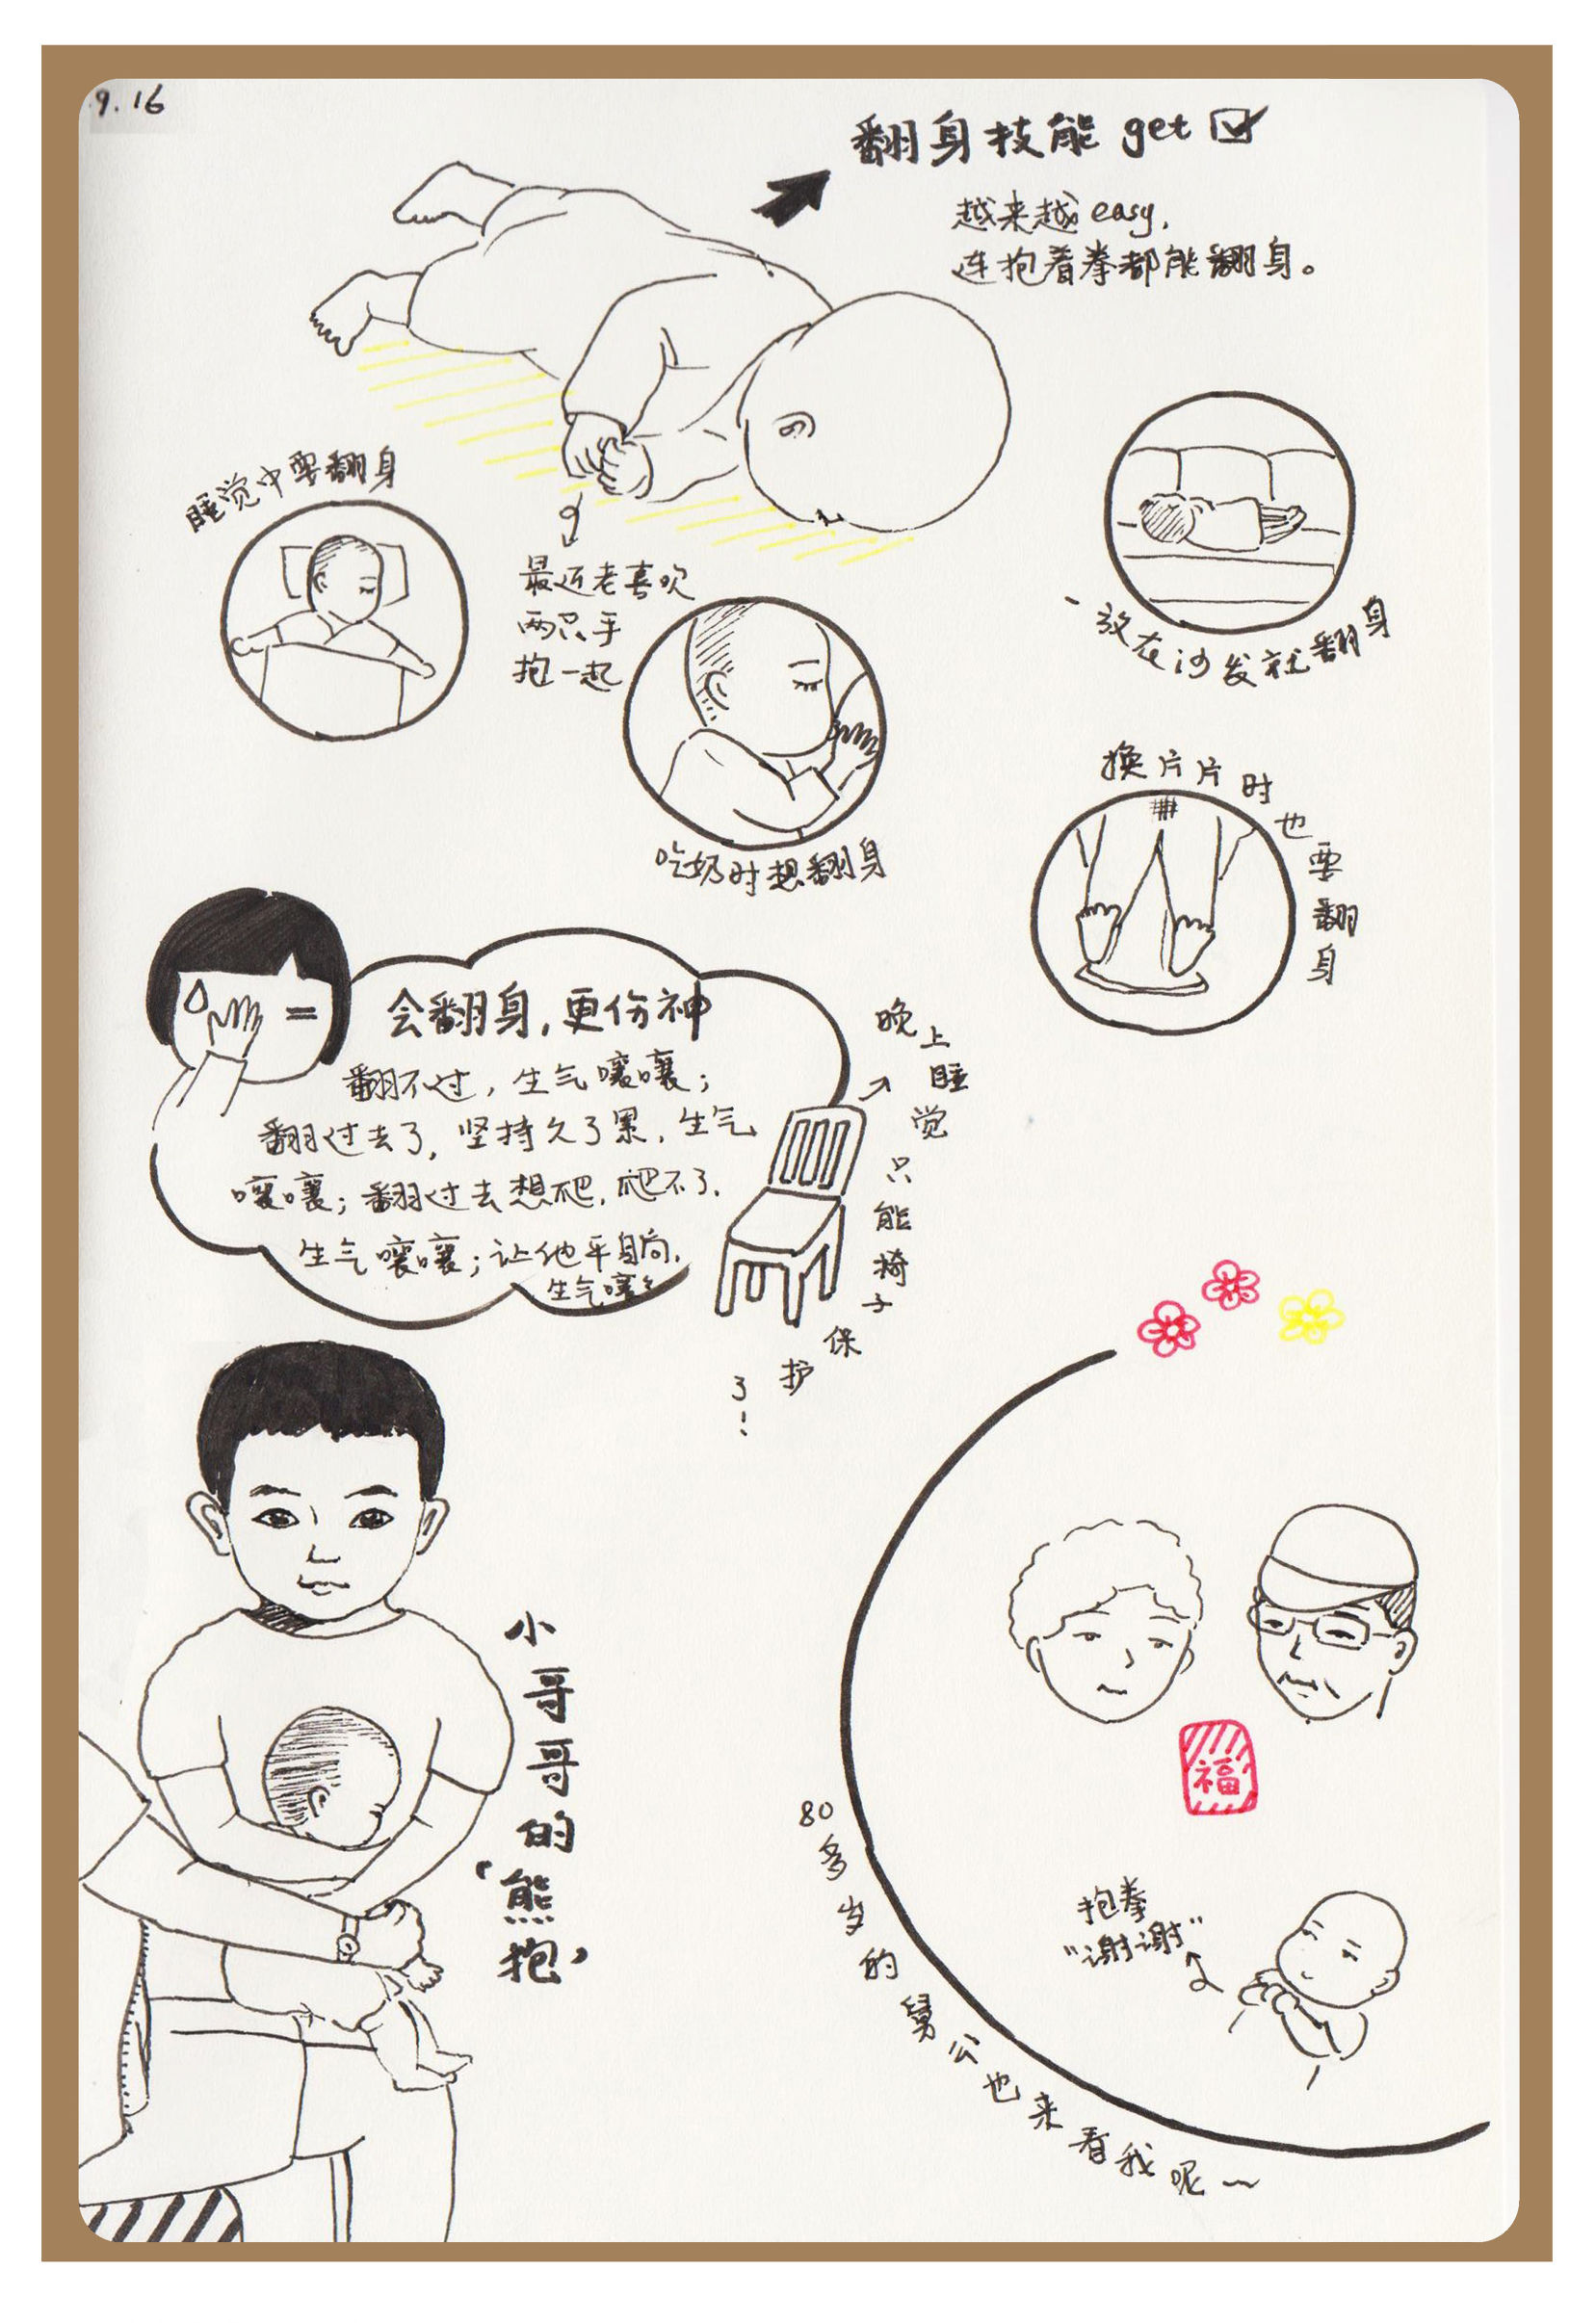 9.16
翻身技能 get
越来越 easy,
连抱着拳都能翻身。
睡觉中要翻身
最近老喜欢
两只手
抱一起
一放在沙发就翻身
吃奶时想翻身
换片片时也要翻身
会翻身,更伤神
翻不过,生气嚷嚷;
翻过去了,坚持久了累,生气
嚷嚷;翻过去想爬,爬不了,
生气嚷嚷;让他平身躺,
生气嚷
晚上睡觉只能椅子保护了!
小哥哥的'熊抱'
福
抱拳
"谢谢"
80多岁的舅公也来看我呢~